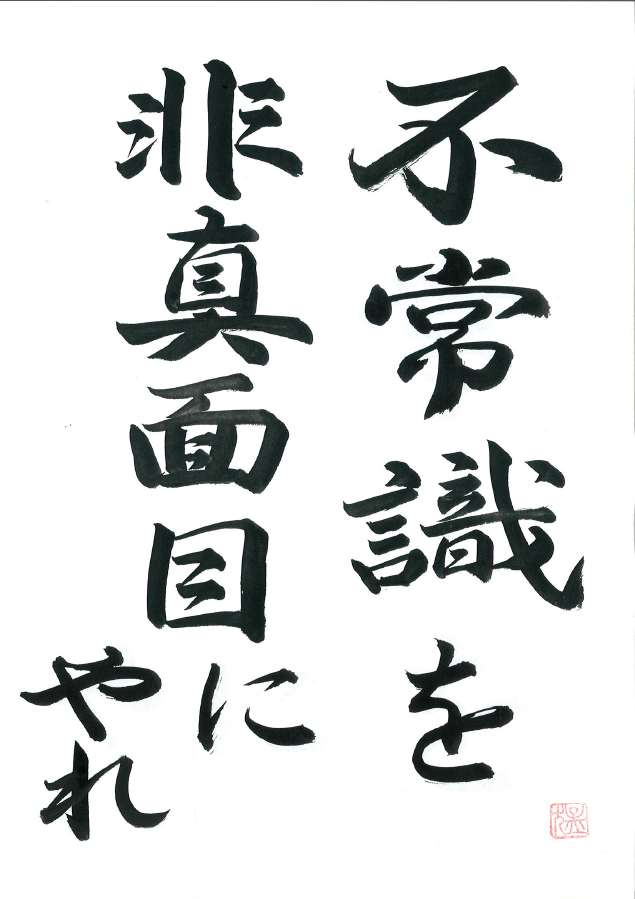 不常識を
非真面目に
やれ